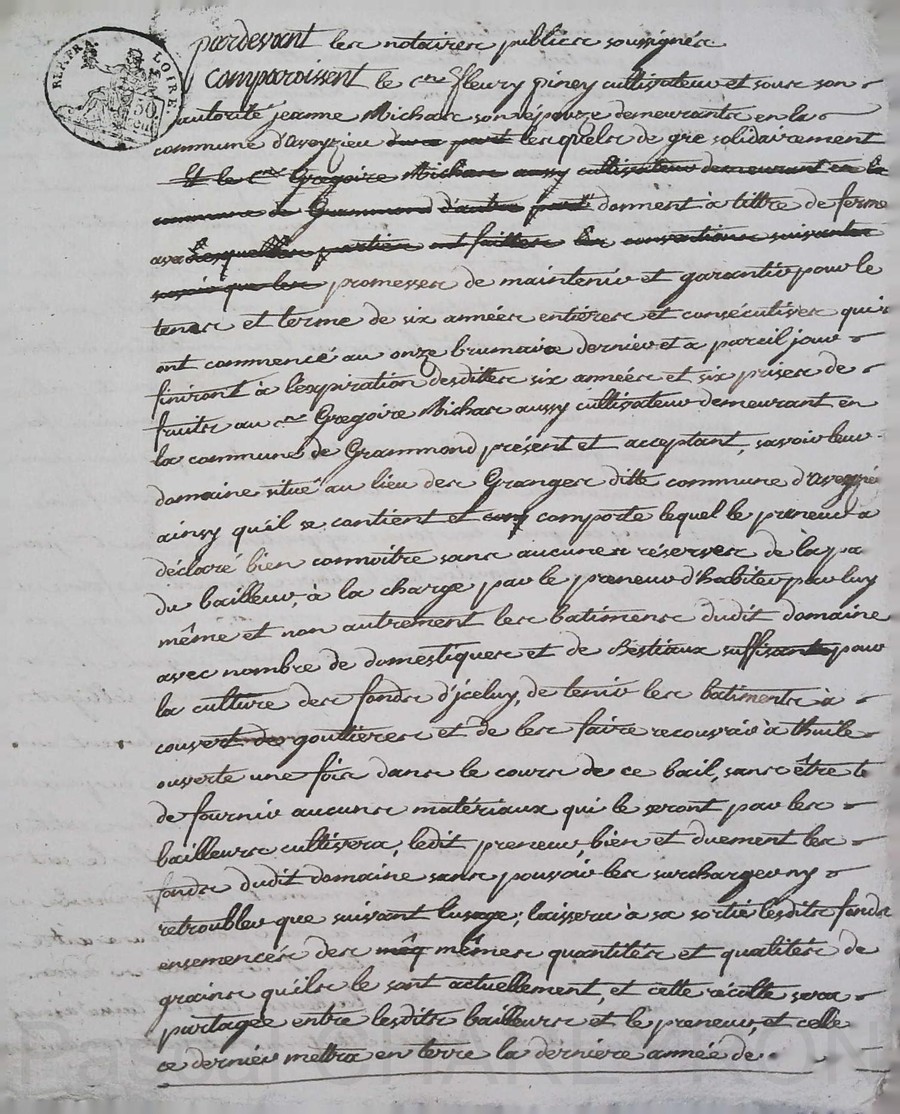 REP. FRA. LOIRE
50 cen
pardevant les notaires publics soussignés
Comparoissent le c.en fleury piney cultivateur et sous son
autorité jeanne Michas son épouze demeurants en la
commune d'aveyzieu d'une part lesquels de gre solidairement
Et le c.en Gregoire Michas aussy cultivateur demeurant en la
commune de Grammond d'autre part donnent à tittre de ferme
avec lesquelles parties ont faittes les conventions suivantes
savoir que les promesses de maintenir et garantir pour le
tems et terme de six années entières et consécutives qui
ont commencé au onze brumaire dernier et a pareil jour
finiront à l'expiration desdittes six années et six prises de
fruits au c.en Gregoire Michas aussy cultivateur demeurant en
la commune de Grammond présent et acceptant, savoir leur
domaine situé au lieu des Granges ditte commune d'aveyzieu
ainsy qu'il se contient et comporte lequel le preneur a
déclaré bien connoitre sans aucunes réserves de la pa
du bailleur, à la charge par le preneur d'habiter par luy
même et non autrement les batiments dudit domaine
avec nombre de domestiques et de Bestiaux suffisants pour
la culture des fonds d'jceluy, de tenir les batiments à
couvert de goutières et de les faire recouvrir à thuile
ouverte une fois dans le cours de ce bail, sans être te
de fournir aucuns matériaux qui le seront par les
bailleurs cultivera, ledit preneur, bien et duement les
fonds dudit domaine sans pouvoir les surcharger ny
retroubler que suivant l'usage; laissera à sa sortie lesdits fonds
ensemencés des mêq mêmes quantités et qualités de
grains qu'ils le sont actuellement, et cette récolte sera
partagée entre lesdits bailleurs et le preneur, et celle
ce dernier mettra en terre la dernière année de